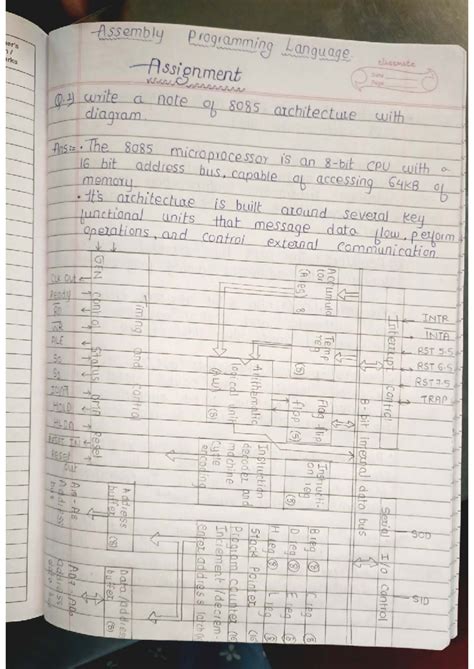 Assembly Programming Language
classmate
Date
Page
Assignment
Q.1) write a note of 8085 architecture with
diagram.
Ans:- • The 8085 microprocessor is an 8-bit CPU with a
16 bit address bus, capable of accessing 64KB of
memory.
• It's architecture is built around several key
functional units that message data flow, perform
operations, and control external communication
INTR
INTA
RST 5.5
RST 6.5
RST 7.5
TRAP
Interrupt control
Serial I/o control
SOD
SID
8-bit internal data bus
Accumula
tor
8
Temp
reg
(8)
Flag flip
flop
Instructi-
on reg
(8)
Arithmatic
logical unit
(8)
Instruction
decoder and
machine
cycle
encoding
B reg (8) C reg (8)
D reg (8) E reg (8)
H reg (8) L reg (8)
Stack pointer
Program counter (16)
Increment/decrem-
Timing and control
control
Status
Reset
Clk out
Ready
RD
WR
ALE
S0
S1
HOLD
HLDA
Reset in
Address
buffer (8)
Data/address
buffer (8)